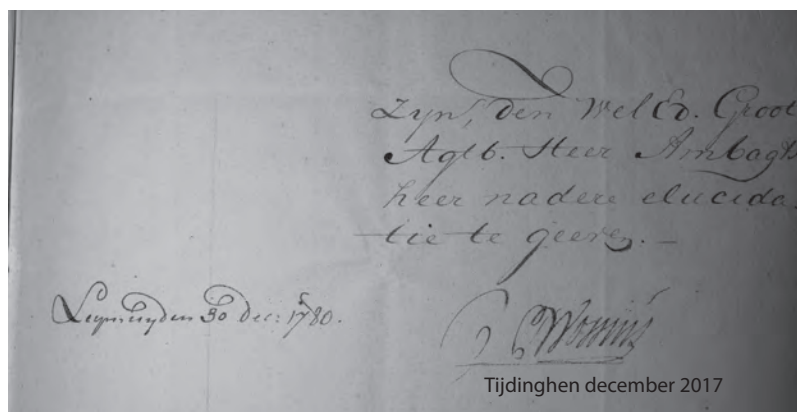 zyn, den Wel Ed. Groot
Agtb. Heer Ambagts
heer nadere elucida-
tie te geeven. —
Leymuyden 30 dec: 1780.
Tijdinghen december 2017